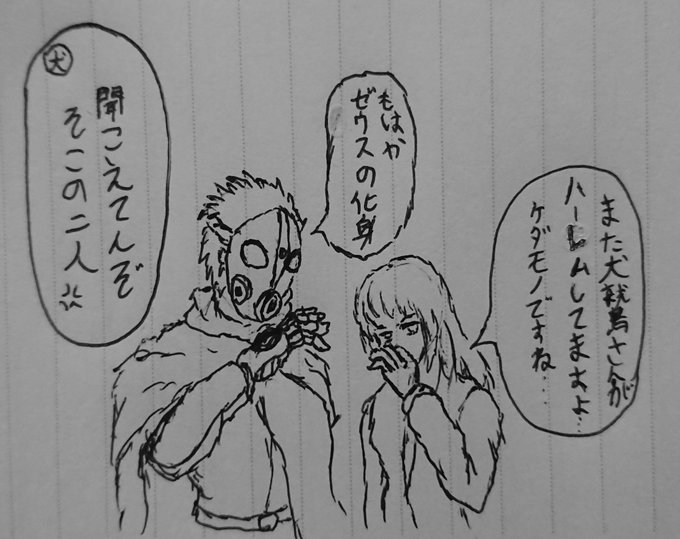 また犬鷲さんが
ハーレムしてますよ…
ケダモノですね…
もはや
ゼウスの化身
犬
聞こえてんぞ
そこの二人